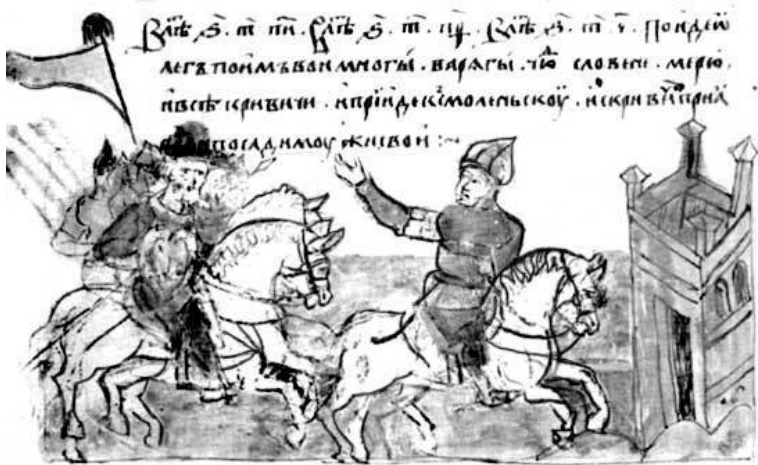 В лѣⷮ . ѕ҃ . т҃ . п҃и . В лѣⷮ . ѕ҃ . т҃ . В лѣⷮ . ѕ҃ . т҃ . ч҃ . Поиде ѡ
легъ поимъ вои многы . варягы . словени . мерю .
и всѣ кривичи . и прїиде къ смоленьскоу . и с кривичи прїа
посади моужи свои :~